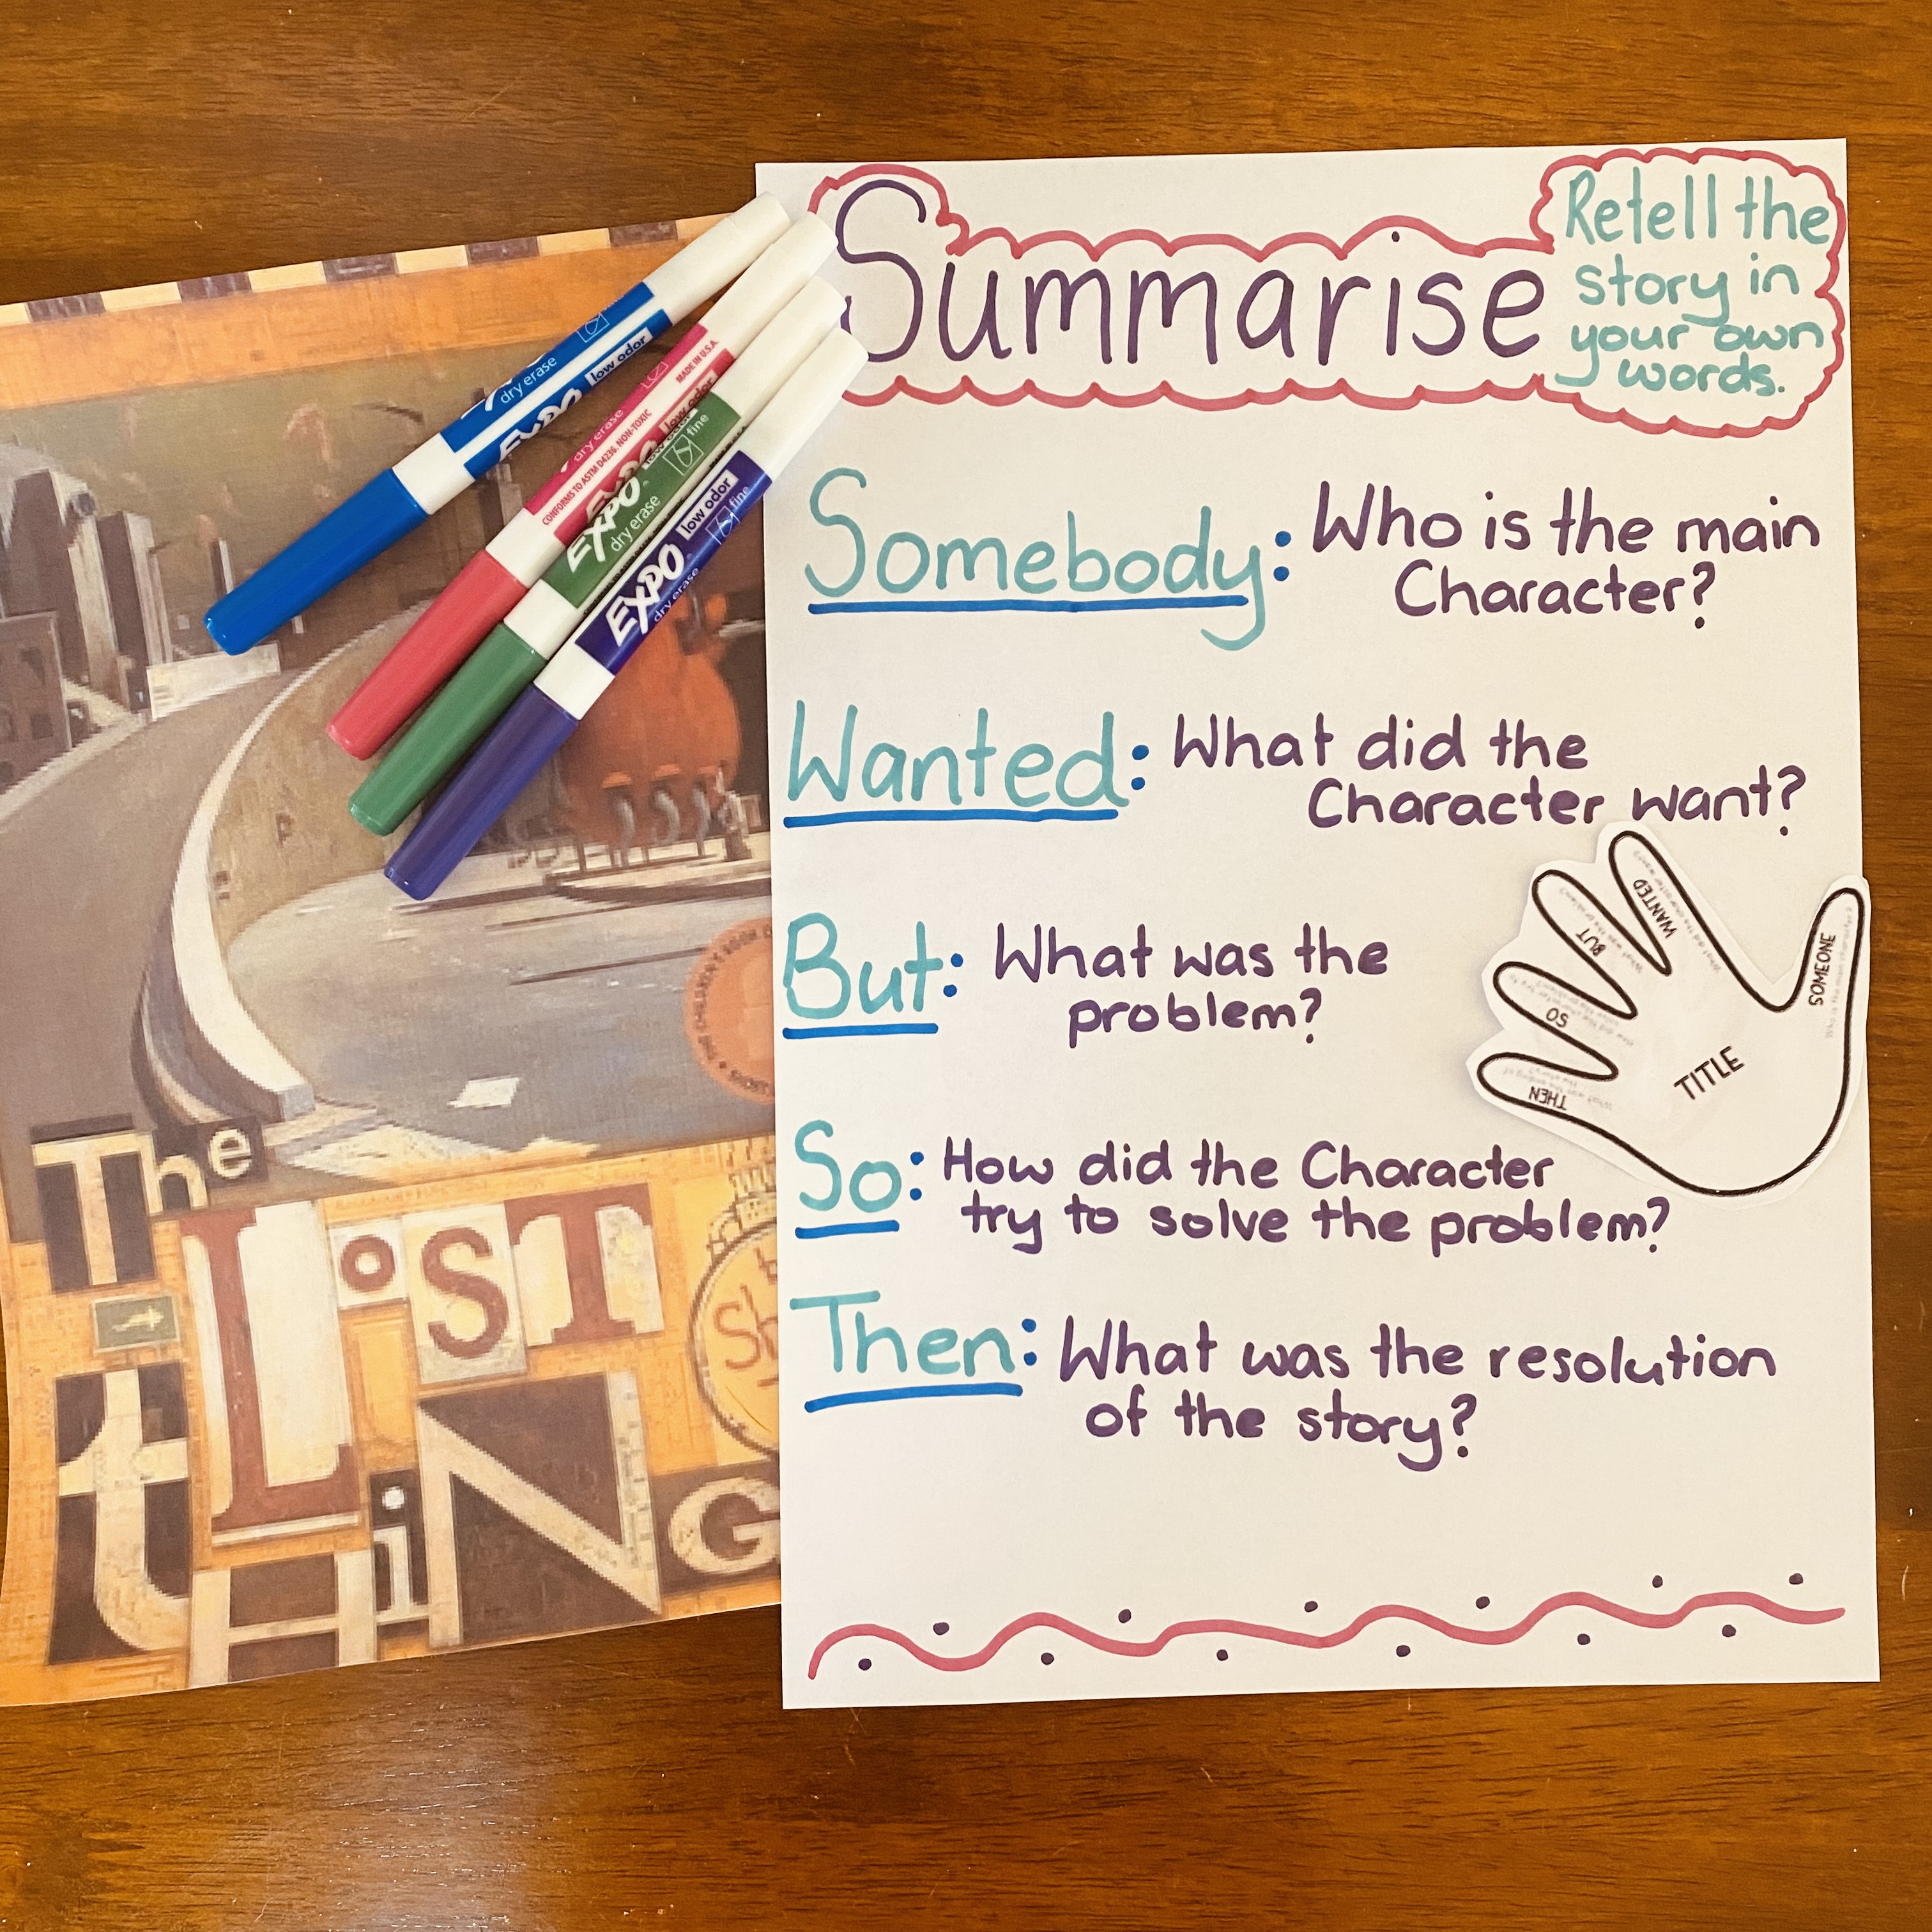 Summarise
Retell the
story in
your own
words.
Somebody: Who is the main
Character?
Wanted: What did the
Character want?
But: What was the
problem?
So: How did the Character
try to solve the problem?
Then: What was the resolution
of the story?
SOMEONE
WANTED
BUT
SO
THEN
TITLE
The
LoST
tHiNG
dry erase
EXPO
low odor
dry erase
MADE IN U.S.A.
CONFORMS TO ASTM D4236. NON-TOXIC
EXPO
low odor
EXPO
dry erase
low odor
fine
EXPO
dry erase
low odor
fine